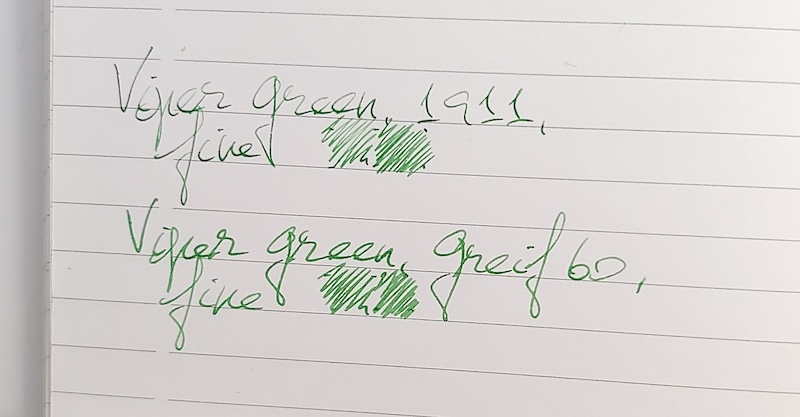 Viper green, 1911,
fine
Viper green, Greif 60,
fine